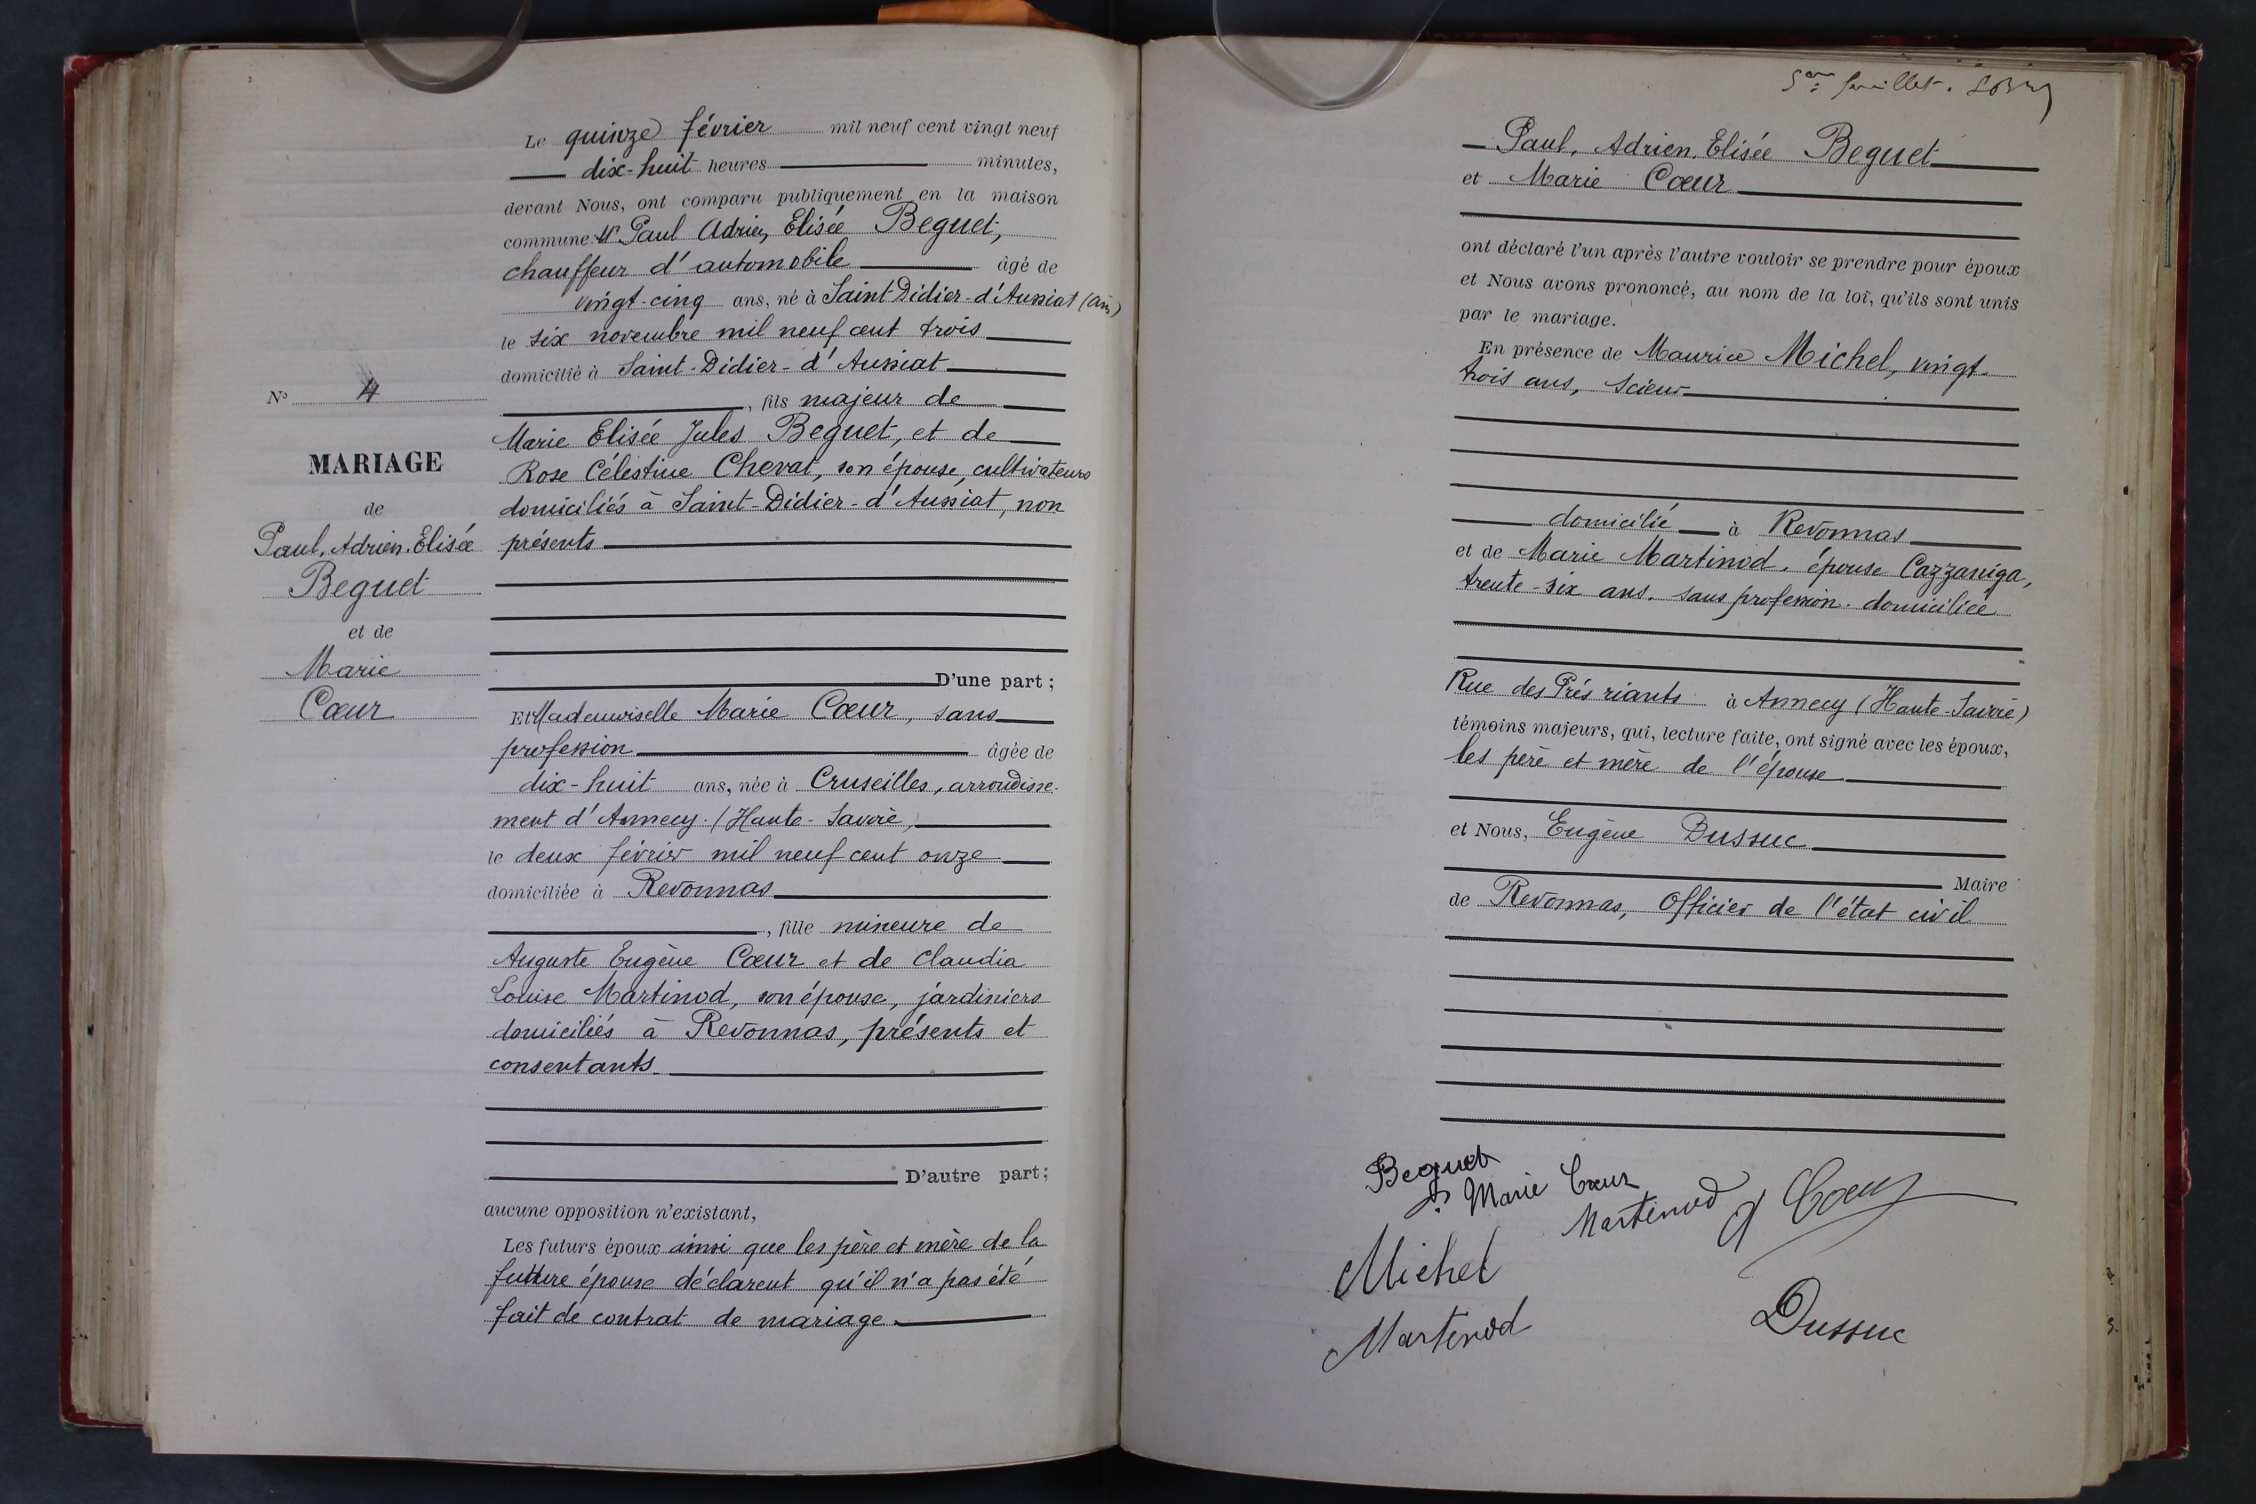 Le quinze février mil neuf cent vingt neuf
dix-huit heures minutes,
devant Nous, ont comparu publiquement en la maison
commune Mr Paul Adrien, Elisée Beguet,
chauffeur d'automobile âgé de
vingt-cinq ans, né à Saint-Didier-d'Aussiat (Ain)
le six novembre mil neuf cent trois
domicilié à Saint-Didier-d'Aussiat
, fils majeur de
Marie Elisée Jules Beguet, et de
Rose Célestine Chevat, son épouse, cultivateurs
domiciliés à Saint-Didier-d'Aussiat, non
présents
D'une part ;
Et Mademoiselle Marie Cœur, sans
profession âgée de
dix-huit ans, née à Cruseilles, arrondisse-
ment d'Annecy (Haute-Savoie,
le deux février mil neuf cent onze
domiciliée à Revonnas
, fille mineure de
Auguste Eugène Cœur et de Claudia
Louise Martinod, son épouse, jardiniers
domiciliés à Revonnas, présents et
consentants.
D'autre part ;
aucune opposition n'existant,
Les futurs époux ainsi que les père et mère de la
future épouse déclarent qu'il n'a pas été
fait de contrat de mariage
N° 4
MARIAGE
de
Paul, Adrien, Elisée
Beguet
et de
Marie
Cœur
5em feuillet.
Paul, Adrien, Elisée Beguet
et Marie Cœur
ont déclaré l'un après l'autre vouloir se prendre pour époux
et Nous avons prononcé, au nom de la loi, qu'ils sont unis
par le mariage.
En présence de Maurice Michel, vingt-
trois ans, scieur
domicilié à Revonnas
et de Marie Martinod, épouse Cazzaniga,
trente-six ans, sans profession domiciliée
Rue des Prés riants à Annecy (Haute-Savoie)
témoins majeurs, qui, lecture faite, ont signé avec les époux,
les père et mère de l'épouse
et Nous, Eugène Dussuc
Maire
de Revonnas, Officier de l'état civil
Beguet
Marie Cœur
Martinod
Cœur
Michel
Martinod
Dussuc